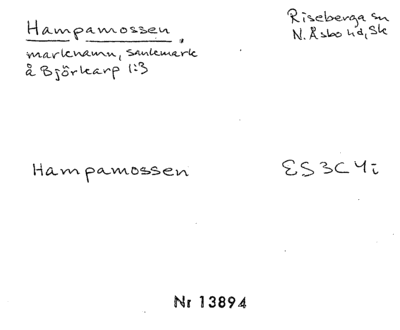 Hampamossen,
Riseberga sn
N. Åsbo hd, Sk
marknamn, sankmark
å Björkarp 1:3
Hampamossen
ES3C4i
Nr 13894